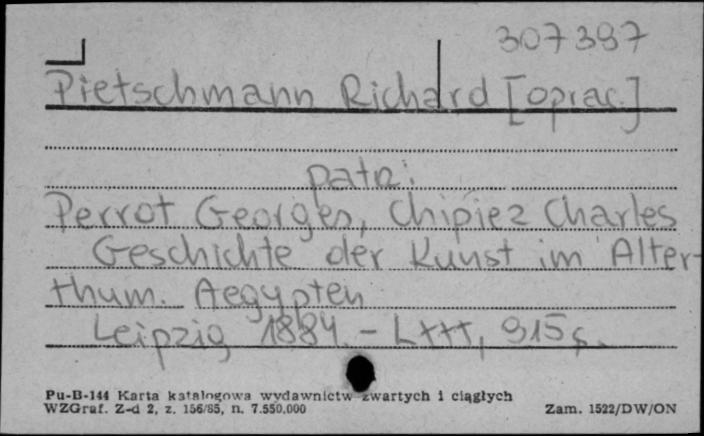 307387
Pietschmann Richard [oprac.]
patrz:
Perrot Georges, Chipiez Charles
Geschichte der Kunst im Alter-
thum. Aegypten
Leipzig 1884. - 915 s.
Pu-B-144 Karta katalogowa wydawnictw zwartych i ciągłych
WZGraf. Z-d 2, z. 156/85, n. 7.550.000
Zam. 1522/DW/ON